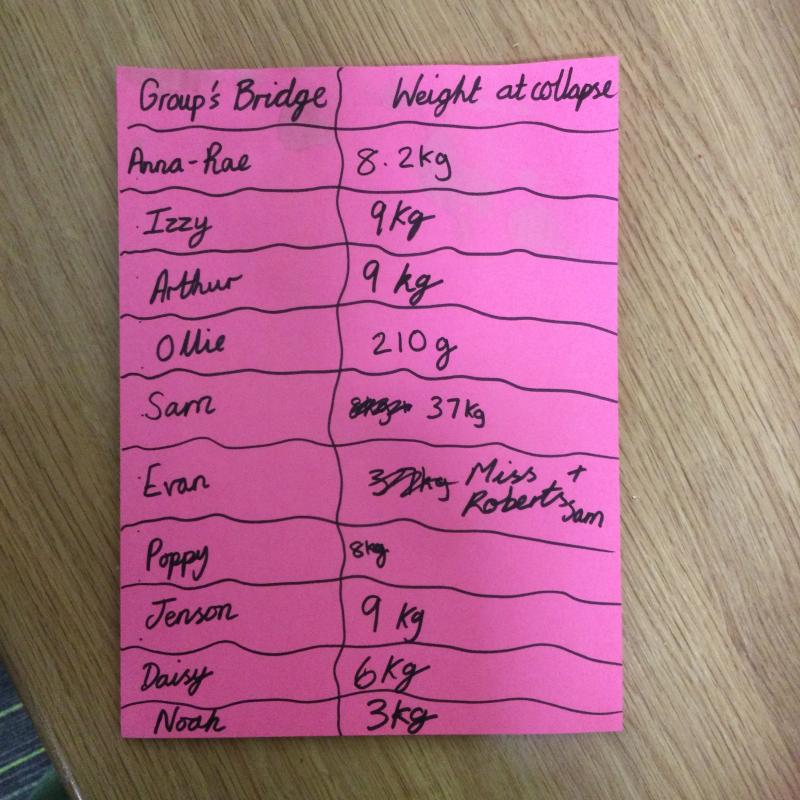 Group's Bridge Weight at collapse
Anna-Rae 8.2kg
Izzy 9kg
Arthur 9 kg
Ollie 210g
Sam 37kg
Evan Miss +
Roberts Sam
Poppy 8kg
Jenson 9 kg
Daisy 6kg
Noah 3kg